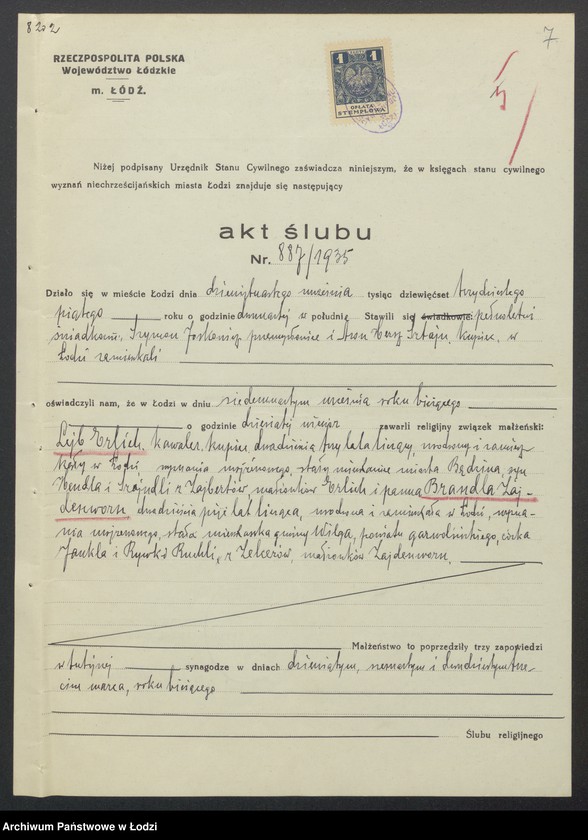 8222
7
RZECZPOSPOLITA POLSKA
Województwo Łódzkie
m. ŁÓDŹ.
1 ZŁOTY 1
OPŁATA
STEMPLOWA
Niżej podpisany Urzędnik Stanu Cywilnego zaświadcza niniejszym, że w księgach stanu cywilnego
wyznań niechrześcijańskich miasta Łodzi znajduje się następujący
akt ślubu
Nr. 887/1935
Działo się w mieście Łodzi dnia dziewiętnastego września tysiąc dziewięćset trzydziestego
piątego roku o godzinie dwunastej w południe Stawili się świadkowie: pełnoletni
świadkowie, Szymon przemysłowiec i kupiec, w
Łodzi zamieszkali
oświadczyli nam, że w Łodzi w dniu siedemnastym września roku bieżącego
o godzinie dziesiątej wieczór zawarli religijny związek małżeński:
Lejb Erlich, kawaler, kupiec, dwadzieścia trzy lata liczący, urodzony i zamiesz-
kały w Łodzi, wyznania mojżeszowego, stały mieszkaniec miasta Będzina, syn
Hendla i Szajndli z Zajbertów, małżonków Erlich i panna Brandla Zaj-
denworn dwadzieścia pięć lat licząca, urodzona i zamieszkała w Łodzi, wyzna-
nia mojżeszowego, stała mieszkanka gminy Wilga, powiatu garwolińskiego, córka
Jankla i Rywki Ruchli, z Zelcerów, małżonków Zajdenworn.
Małżeństwo to poprzedziły trzy zapowiedzi
w tutejszej synagodze w dniach dziewiątym, szesnastym i dwudziestym trze-
cim marca, roku bieżącego
Ślubu religijnego
Archiwum Państwowe w Łodzi